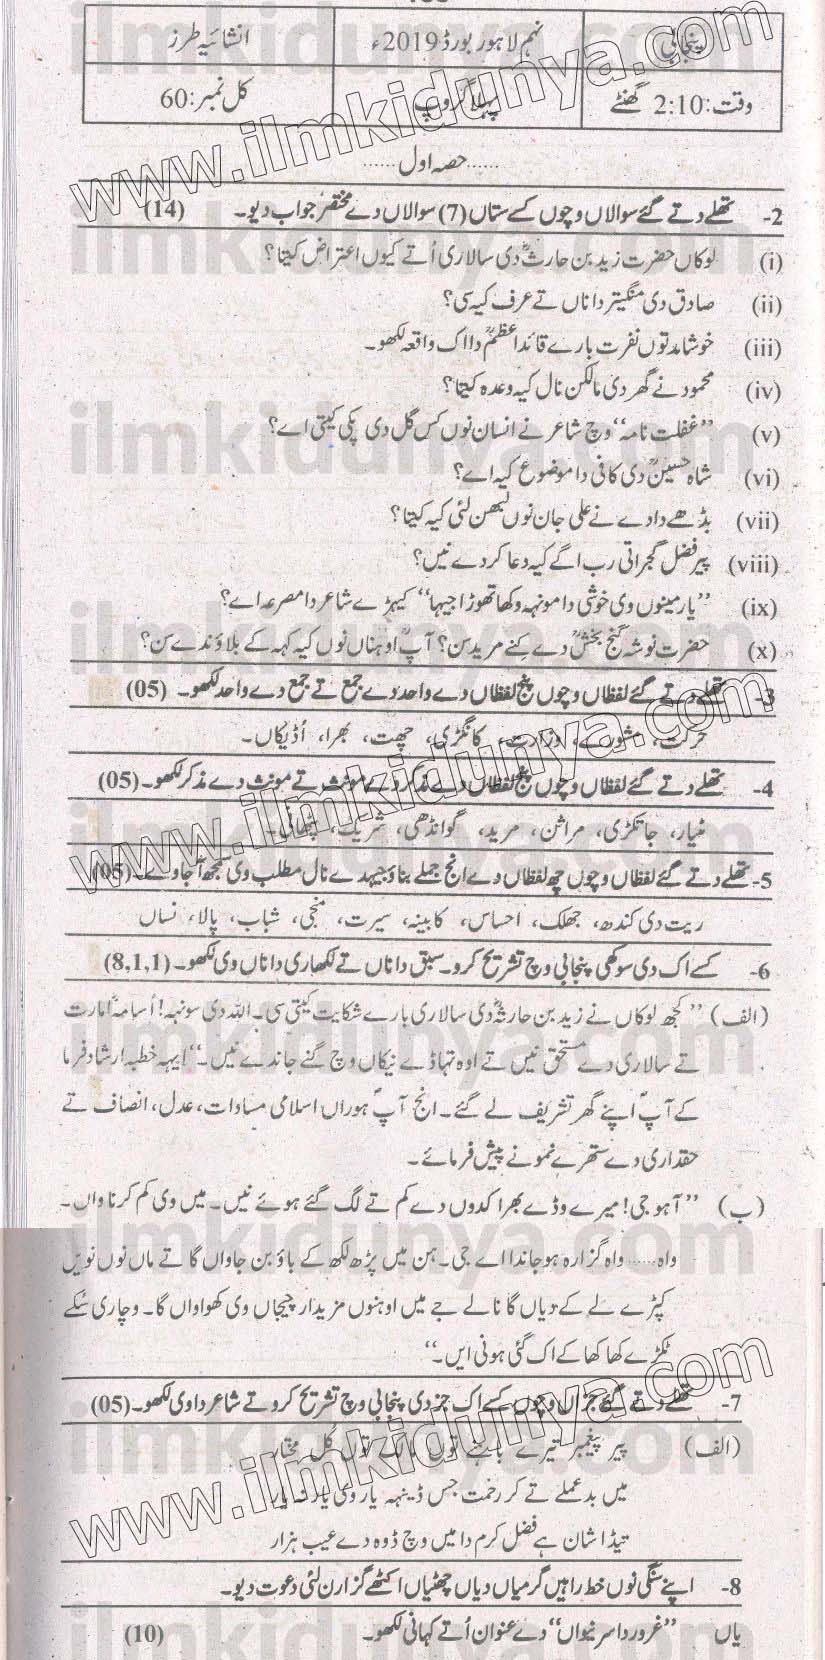 پنجابی نہم لاہور بورڈ 2019ء انشائیہ طرز
وقت: 2:10 گھنٹے پہلا گروپ کل نمبر: 60
......حصہ اول......
2- تھلے دتے گئے سوالاں وچوں کسے ستاں (7) سوالاں دے مختصر جواب دیو۔ (14)
(i) لوکاں حضرت زید بن حارثہؓ دی سالاری اُتے کیوں اعتراض کیتا؟
(ii) صادق دی منگیتر دا ناں تے عرف کیہ سی؟
(iii) خوشامد توں نفرت بارے قائد اعظمؒ دا اک واقعہ لکھو۔
(iv) محمود نے گھر دی مالکن نال کیہ وعدہ کیتا؟
(v) ”غفلت نامہ“ وچ شاعر نے انسان نوں کس گل دی پکی کیتی اے؟
(vi) شاہ حسینؒ دی کافی دا موضوع کیہ اے؟
(vii) بڈھے دادے نے علی جان نوں لبھن لئی کیہ کیتا؟
(viii) پیر فضل گجراتی رب اگے کیہ دعا کردے نیں؟
(ix) ”یار مینوں وی خوشی دا مونہہ وکھا تھوڑا جیہا“ کیہڑے شاعر دا مصرعہ اے؟
(x) حضرت نوشہ گنج بخشؒ دے کِنے مرید سن؟ آپؒ اوہناں نوں کیہ کہہ کے بلاؤندے سن؟
3- تھلے دتے گئے لفظاں وچوں پنج لفظاں دے واحد دے جمع تے جمع دے واحد لکھو۔ (05)
حرکت، مشورے، وزارت، کانگڑی، چھت، بھرا، اُڈیکاں۔
4- تھلے دتے گئے لفظاں وچوں پنج لفظاں دے مذکر دے مونث تے مونث دے مذکر لکھو۔ (05)
منیار، جاتکڑی، مراثن، مرید، گوانڈھی، شریک، پٹھانی۔
5- تھلے دتے گئے لفظاں وچوں چھ لفظاں دے انج جملے بناؤ جیہدے نال مطلب وی سمجھ آ جاوے۔ (05)
ریت دی کندھ، جھلک، احساس، کابینہ، سیرت، منجی، شباب، پالا، نساں
6- کسے اک دی سوکھی پنجابی وچ تشریح کرو۔ سبق دا ناں تے لکھاری دا ناں وی لکھو۔ (8,1,1)
(الف) ”کجھ لوکاں نے زید بن حارثہؓ دی سالاری بارے شکایت کیتی سی۔ اللہ دی سونہہ! اُسامہؓ امارت
تے سالاری دے مستحق نیں تے اوہ تہاڈے نیکاں وچ گنے جاندے نیں۔“ ایہہ خطبہ ارشاد فرما
کے آپؐ اپنے گھر تشریف لے گئے۔ انج آپؐ ہوراں اسلامی مساوات، عدل، انصاف تے
حقداری دے ستھرے نمونے پیش فرمائے۔
(ب) ”آہو جی! میرے وڈے بھرا کدوں دے کم تے لگ گئے ہوئے نیں۔ میں وی کم کرنا واں۔
واہ...... واہ گزارہ ہو جاندا اے جی۔ ہن میں پڑھ لکھ کے باؤ بن جاواں گا تے ماں نوں نویں
کپڑے لے کے دیاں گا نالے جے میں اوہنوں مزیدار چیجاں وی کھواواں گا۔ وچاری سُکے
ٹکڑے کھا کھا کے اک گئی ہونی ایں۔“
7- تھلے دتے گئے جزاں وچوں کسے اک جز دی پنجابی وچ تشریح کرو تے شاعر دا وی لکھو۔ (05)
(الف) پیر پیغمبر تیرے توں مالک توں کُل مختار
میں بدعملے تے کر رحمت جس ڈینہہ یار وی یار نہ یار
تیڈا شان ہے فضل کرم دا میں وچ ڈوہ دے عیب ہزار
8- اپنے سنگی نوں خط راہیں گرمیاں دیاں چھٹیاں اکٹھے گزارن لئی دعوت دیو۔
یاں ”غرور دا سر نیواں“ دے عنوان اُتے کہانی لکھو۔ (10)
www.ilmkidunya.com
www.ilmkidunya.com
www.ilmkidunya.com
ilmkidunya.com